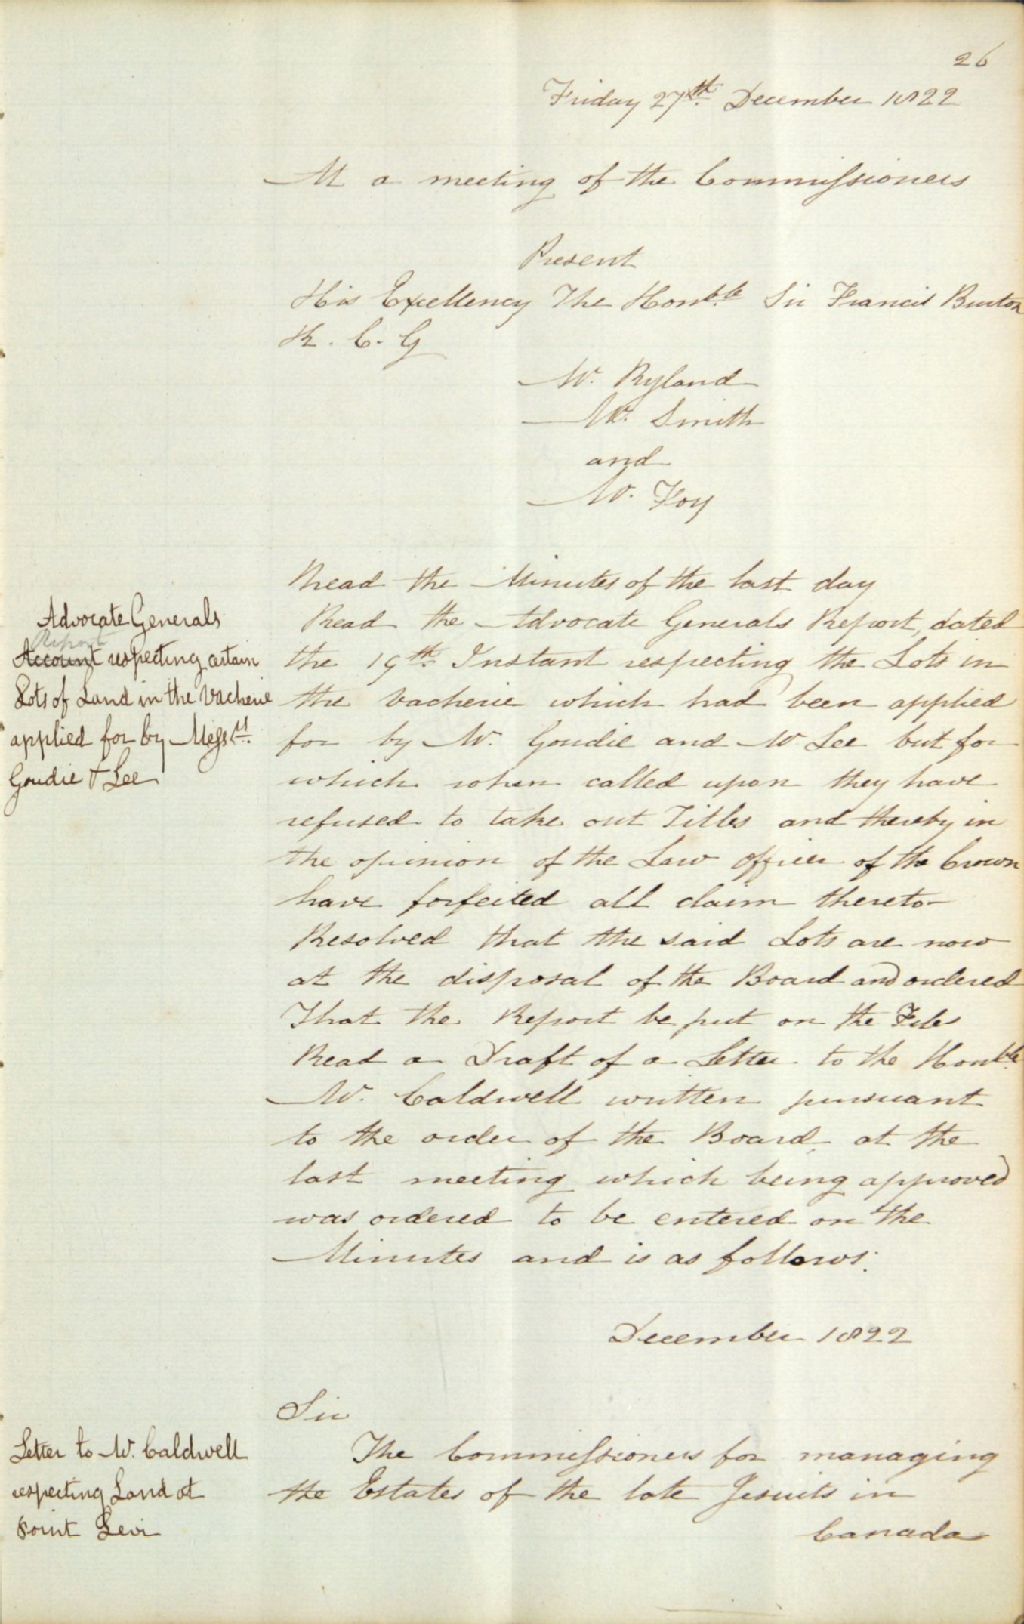 26
Friday 27th December 1822
At a meeting of the Commissioners
Present
His Excellency The Honble Sir Francis Burton
K. C. G
Mr. Ryland
Mr. Smith
and
Mr. Foy
Read the Minutes of the last day
Advocate Generals
Report
Account respecting certain
Lots of Land in the Vacherie
applied for by Messrs.
Goudie & Lee
Read the Advocate Generals Report, dated
the 19th Instant respecting the Lots in
the Vacherie which had been applied
for by Mr. Goudie and Mr Lee but for
which when called upon they have
refused to take out Titles and thereby in
the opinion of the Law officer of the Crown
have forfeited all claim thereto
Resolved that the said Lots are now
at the disposal of the Board and ordered
That the Report be put on the Files
Read a Draft of a Letter to the Honble
Mr. Caldwell written pursuant
to the order of the Board, at the
last meeting which being approved
was ordered to be entered on the
Minutes and is as follows:
December 1822
Sir
Letter to Mr. Caldwell
respecting Land at
Point Levi
The Commissioners for managing
the Estates of the late Jesuits in
Canada